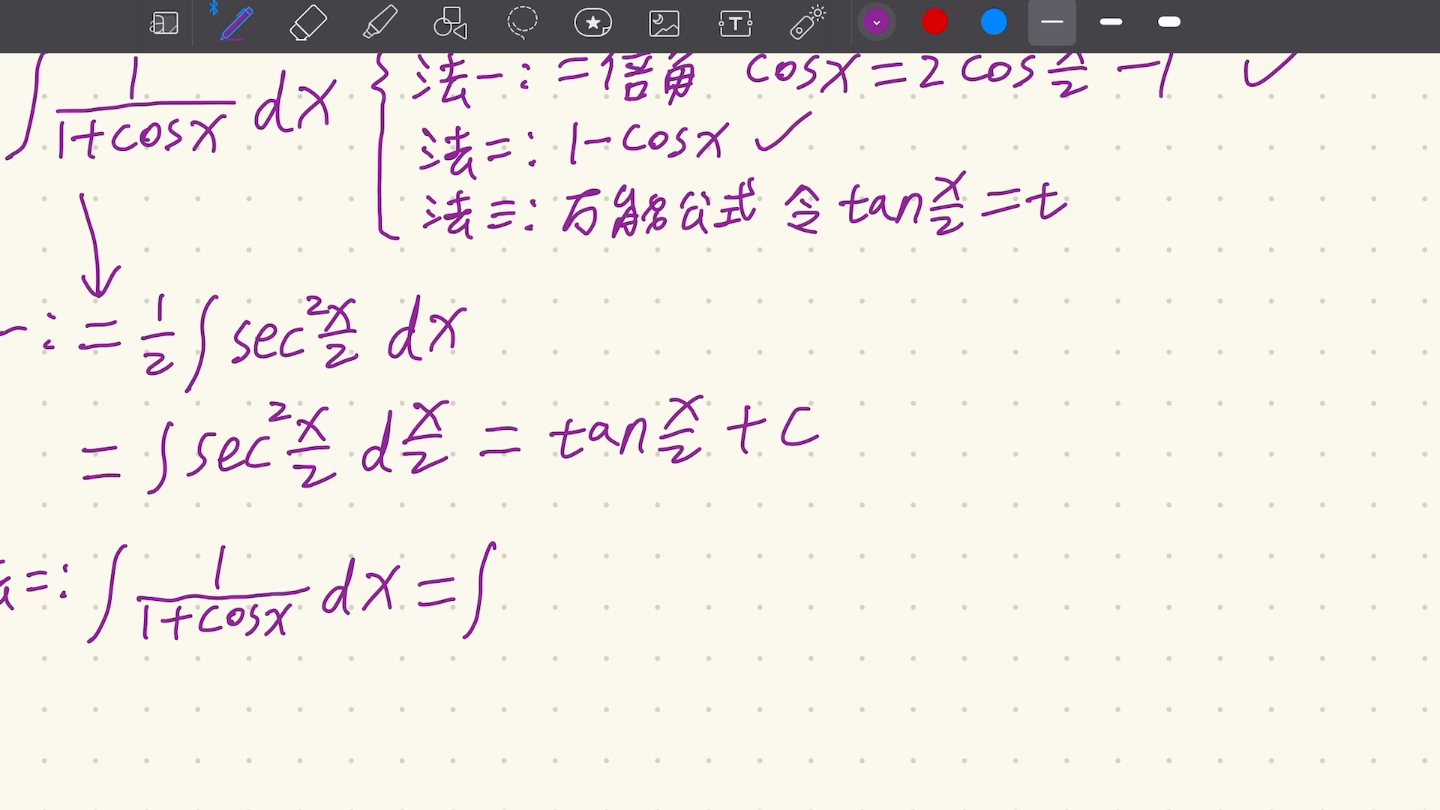 ∫ 1/(1+cosx) dx { 法一: 二倍角 cosx = 2 cos x/2 - 1 ✓
法二: 1-cosx ✓
法三: 万能公式 令 tan x/2 = t
一: = 1/2 ∫ sec² x/2 dx
= ∫ sec² x/2 d x/2 = tan x/2 + C
法二: ∫ 1/(1+cosx) dx = ∫